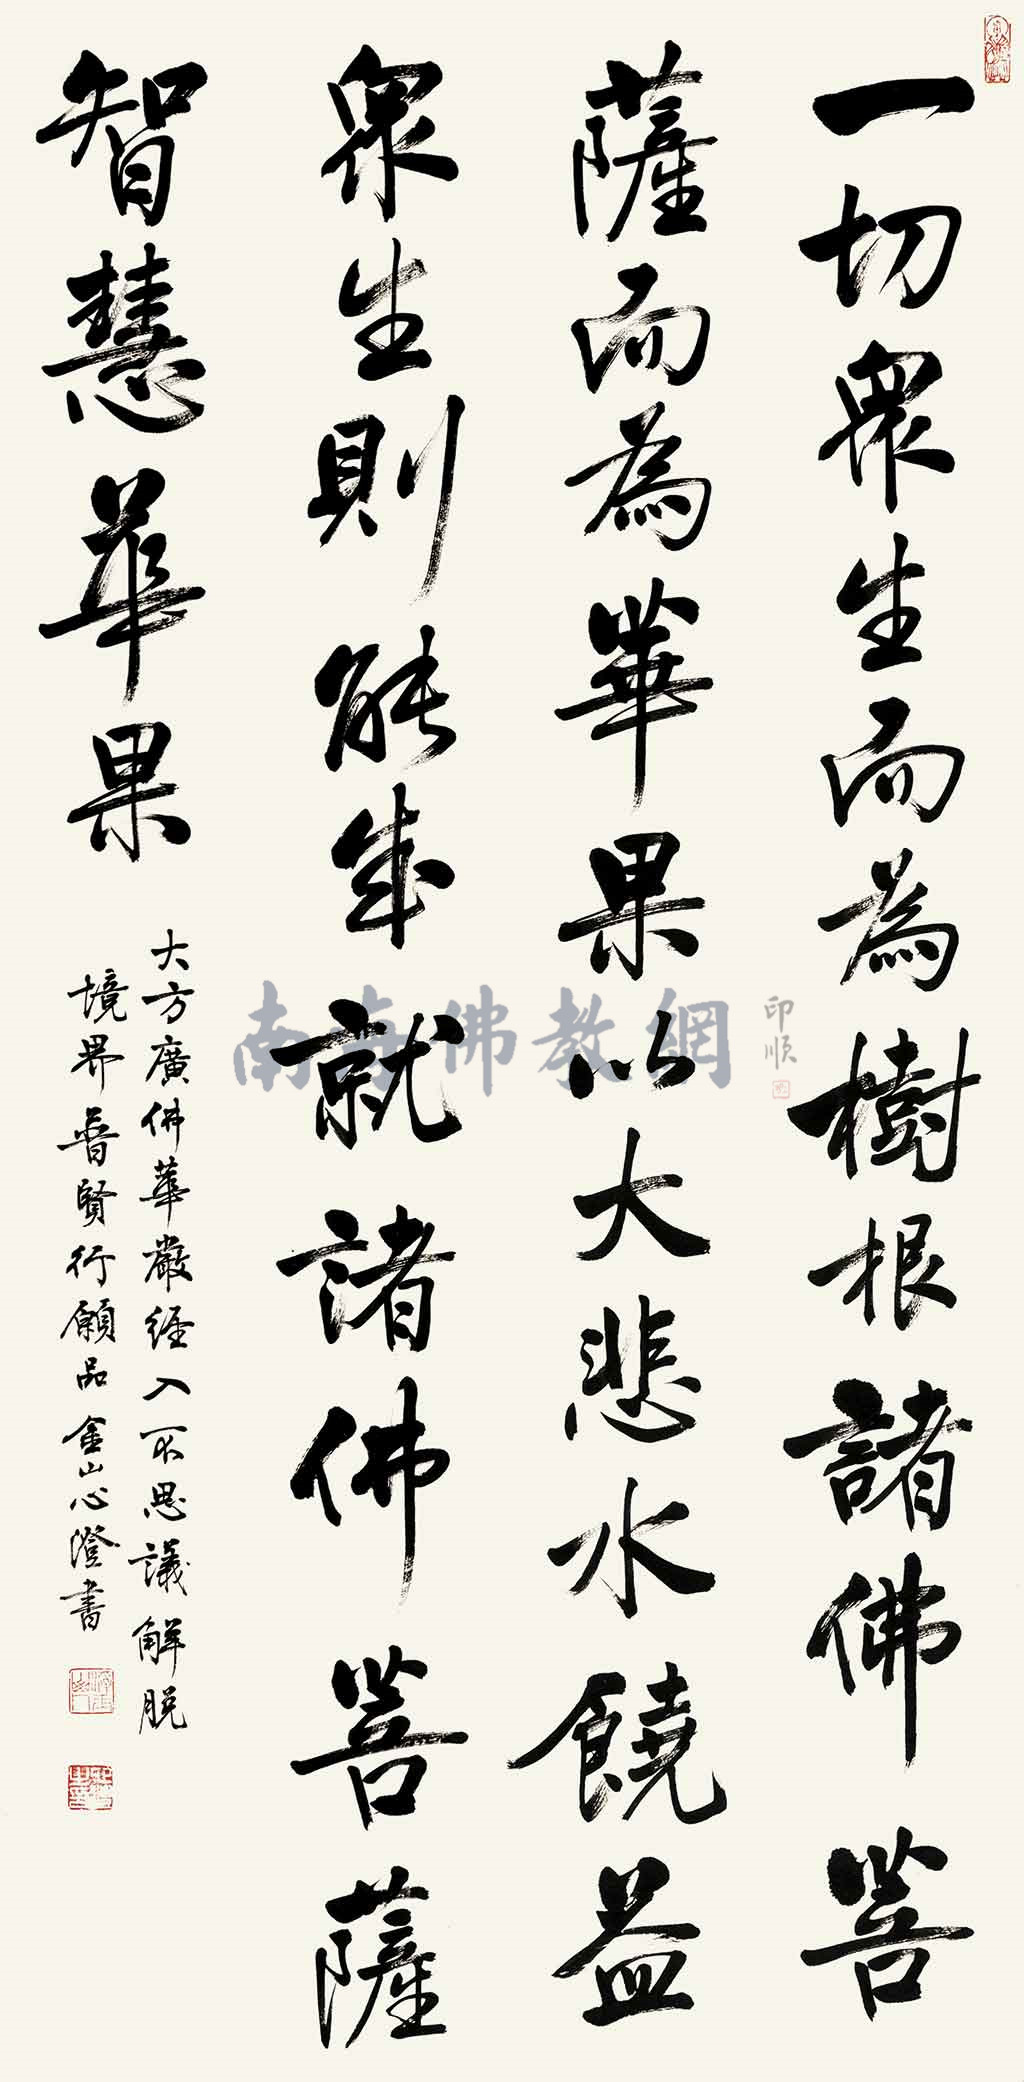 一切眾生而為樹根諸佛菩
薩而為華果以大悲水饒益
眾生則能成就諸佛菩薩
智慧華果
大方廣佛華嚴經入不思議解脫
境界普賢行願品金山心澄書
南海佛教網
印順